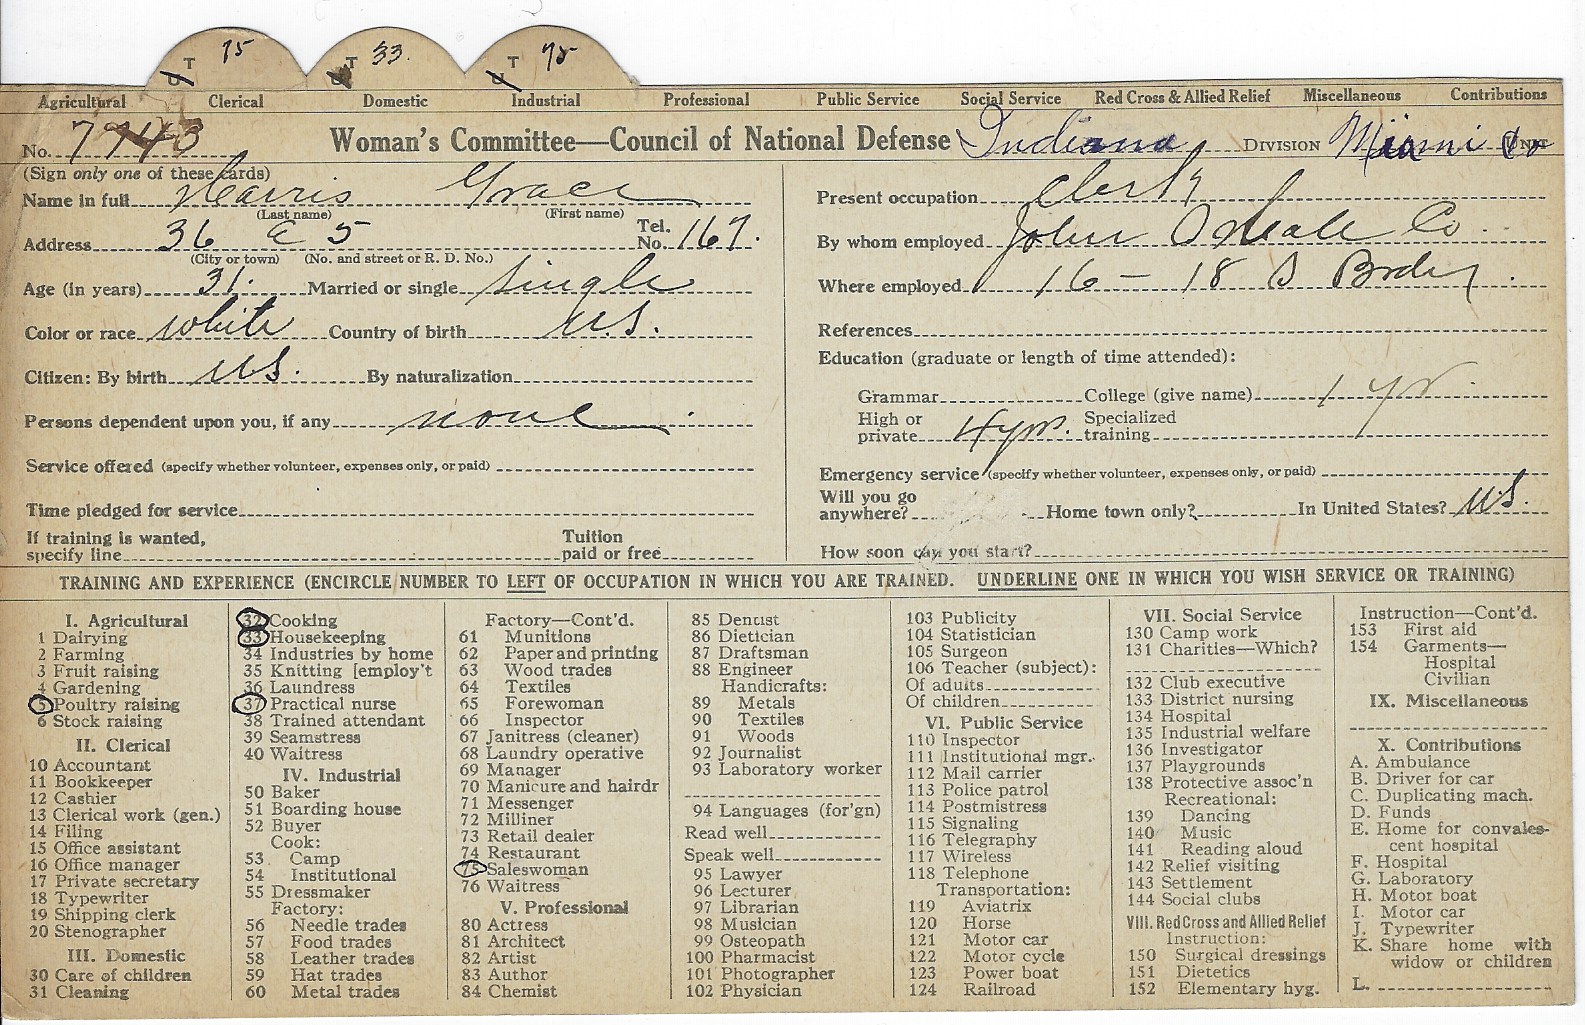 T 75 T 33. T 75
Agricultural Clerical Domestic Industrial Professional Public Service Social Service Red Cross & Allied Relief Miscellaneous Contributions
No. 77443 Woman's Committee—Council of National Defense Indiana DIVISION Miami Co UNIT
(Sign only one of these cards)
Name in full Harris Grace
(Last name) (First name)
Address 36 E 5 Tel. No. 167.
(City or town) (No. and street or R. D. No.)
Age (in years) 31. Married or single single
Color or race white Country of birth U.S.
Citizen: By birth U.S. By naturalization
Persons dependent upon you, if any none
Service offered (specify whether volunteer, expenses only, or paid)
Time pledged for service
If training is wanted, specify line Tuition paid or free
Present occupation Clerk
By whom employed John O Neale Co
Where employed 16 – 18 S Brdwy
References
Education (graduate or length of time attended):
Grammar College (give name) 1 yr.
High or private 4 yrs. Specialized training
Emergency service (specify whether volunteer, expenses only, or paid)
Will you go anywhere? Home town only? In United States? U.S.
How soon can you start?
TRAINING AND EXPERIENCE (ENCIRCLE NUMBER TO LEFT OF OCCUPATION IN WHICH YOU ARE TRAINED. UNDERLINE ONE IN WHICH YOU WISH SERVICE OR TRAINING)
I. Agricultural
1 Dairying
2 Farming
3 Fruit raising
4 Gardening
5 Poultry raising
6 Stock raising
II. Clerical
10 Accountant
11 Bookkeeper
12 Cashier
13 Clerical work (gen.)
14 Filing
15 Office assistant
16 Office manager
17 Private secretary
18 Typewriter
19 Shipping clerk
20 Stenographer
III. Domestic
30 Care of children
31 Cleaning
32 Cooking
33 Housekeeping
34 Industries by home
35 Knitting [employ't
36 Laundress
37 Practical nurse
38 Trained attendant
39 Seamstress
40 Waitress
IV. Industrial
50 Baker
51 Boarding house
52 Buyer
Cook:
53 Camp
54 Institutional
55 Dressmaker
Factory:
56 Needle trades
57 Food trades
58 Leather trades
59 Hat trades
60 Metal trades
Factory—Cont'd.
61 Munitions
62 Paper and printing
63 Wood trades
64 Textiles
65 Forewoman
66 Inspector
67 Janitress (cleaner)
68 Laundry operative
69 Manager
70 Manicure and hairdr
71 Messenger
72 Milliner
73 Retail dealer
74 Restaurant
75 Saleswoman
76 Waitress
V. Professional
80 Actress
81 Architect
82 Artist
83 Author
84 Chemist
85 Dentist
86 Dietician
87 Draftsman
88 Engineer
Handicrafts:
89 Metals
90 Textiles
91 Woods
92 Journalist
93 Laboratory worker
94 Languages (for'gn)
Read well
Speak well
95 Lawyer
96 Lecturer
97 Librarian
98 Musician
99 Osteopath
100 Pharmacist
101 Photographer
102 Physician
103 Publicity
104 Statistician
105 Surgeon
106 Teacher (subject):
Of adults
Of children
VI. Public Service
110 Inspector
111 Institutional mgr.
112 Mail carrier
113 Police patrol
114 Postmistress
115 Signaling
116 Telegraphy
117 Wireless
118 Telephone
Transportation:
119 Aviatrix
120 Horse
121 Motor car
122 Motor cycle
123 Power boat
124 Railroad
VII. Social Service
130 Camp work
131 Charities—Which?
132 Club executive
133 District nursing
134 Hospital
135 Industrial welfare
136 Investigator
137 Playgrounds
138 Protective assoc'n
Recreational:
139 Dancing
140 Music
141 Reading aloud
142 Relief visiting
143 Settlement
144 Social clubs
VIII. Red Cross and Allied Relief
Instruction:
150 Surgical dressings
151 Dietetics
152 Elementary hyg.
Instruction—Cont'd.
153 First aid
154 Garments—
Hospital
Civilian
IX. Miscellaneous
X. Contributions
A. Ambulance
B. Driver for car
C. Duplicating mach.
D. Funds
E. Home for convales-
cent hospital
F. Hospital
G. Laboratory
H. Motor boat
I. Motor car
J. Typewriter
K. Share home with
widow or children
L.